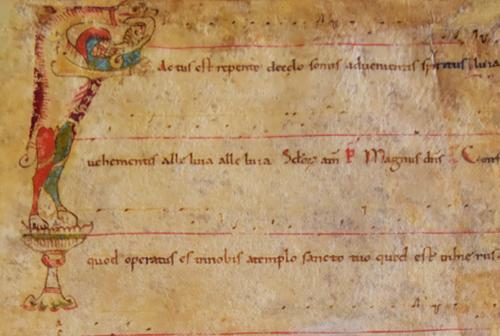 Factus est repente decelo sonus advenientis spiritus
vehementis alleluia alleluia Ps Magnus dns Conf
quod operatus es innobis atemplo sancto tuo quod est